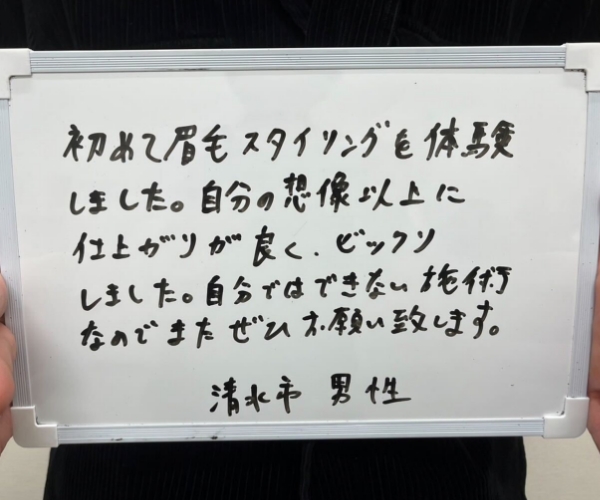 初めて眉毛スタイリングを体験
しました。自分の想像以上に
仕上がりが良く、ビックリ
しました。自分ではできない施術
なのでまたぜひお願い致します。
清水市 男性